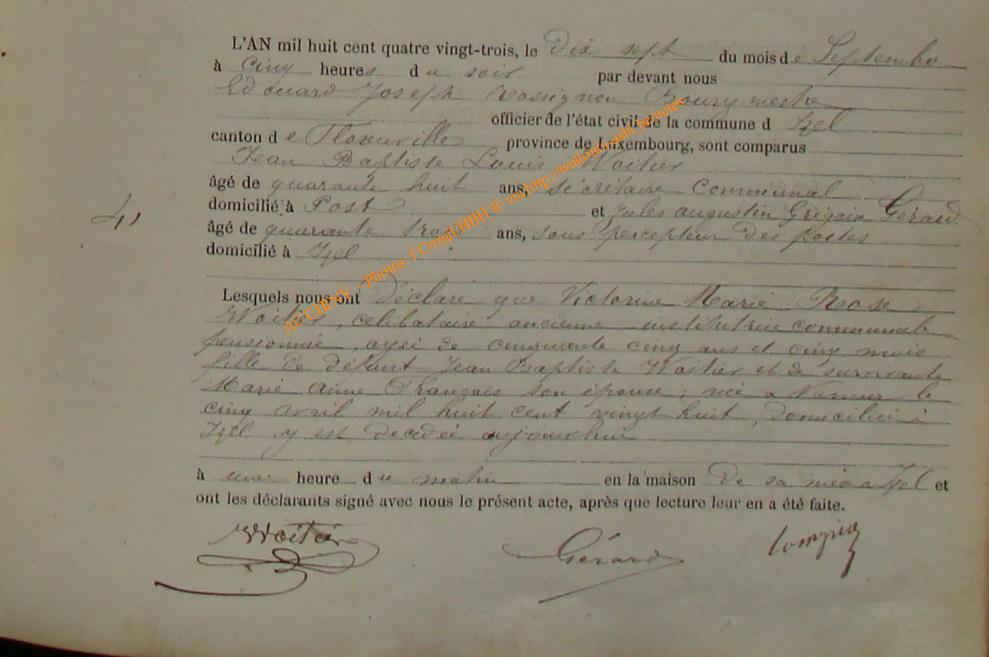 L'AN mil huit cent quatre vingt-trois, le Dix sept du mois de Septembre
à Cinq heures du soir par devant nous
Edouard Joseph Rossignon Bourgmestre
officier de l'état civil de la commune d Izel
canton de Florenville province de Luxembourg, sont comparus
Jean Baptiste Louis Woitier
âgé de quarante huit ans, secrétaire Communal
domicilié à Post et Jules augustin Grégoire Gérard
âgé de quarante trois ans, sous percepteur des postes
domicilié à Izel
4,
Lesquels nous ont déclaré que Victorine Marie Rose
Woitier, celibataire ancienne institutrice communale
pensionnée, agée de cinquante cinq ans et cinq mois
fille de défunt Jean Baptiste Woitier et de survivante
Marie Anne Français son épouse, née a Namur le
cinq avril mil huit cent vingt huit, domiciliée à
Izel y est decedée aujourdhui
à une heure du matin en la maison De sa mère a Izel et
ont les déclarants signé avec nous le présent acte, après que lecture leur en a été faite.
Woitier Gérard